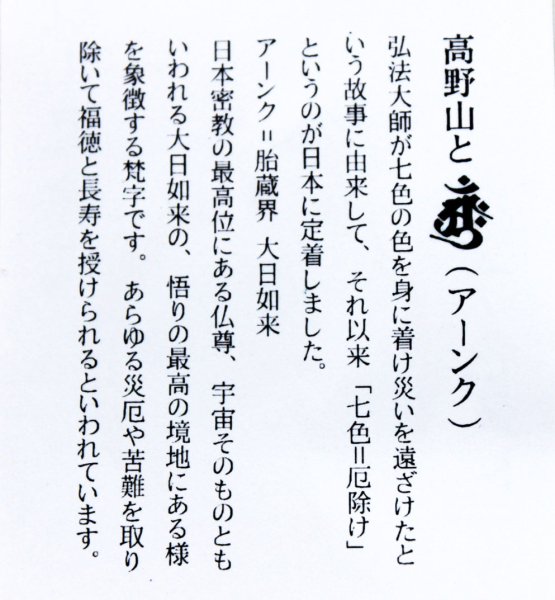 高野山と𑖀𑖾(アーンク)
弘法大師が七色の色を身に着け災いを遠ざけたと
いう故事に由来して、それ以来「七色=厄除け」
というのが日本に定着しました。
アーンク=胎蔵界 大日如来
日本密教の最高位にある仏尊、宇宙そのものとも
いわれる大日如来の、悟りの最高の境地にある様
を象徴する梵字です。あらゆる災厄や苦難を取り
除いて福徳と長寿を授けられるといわれています。